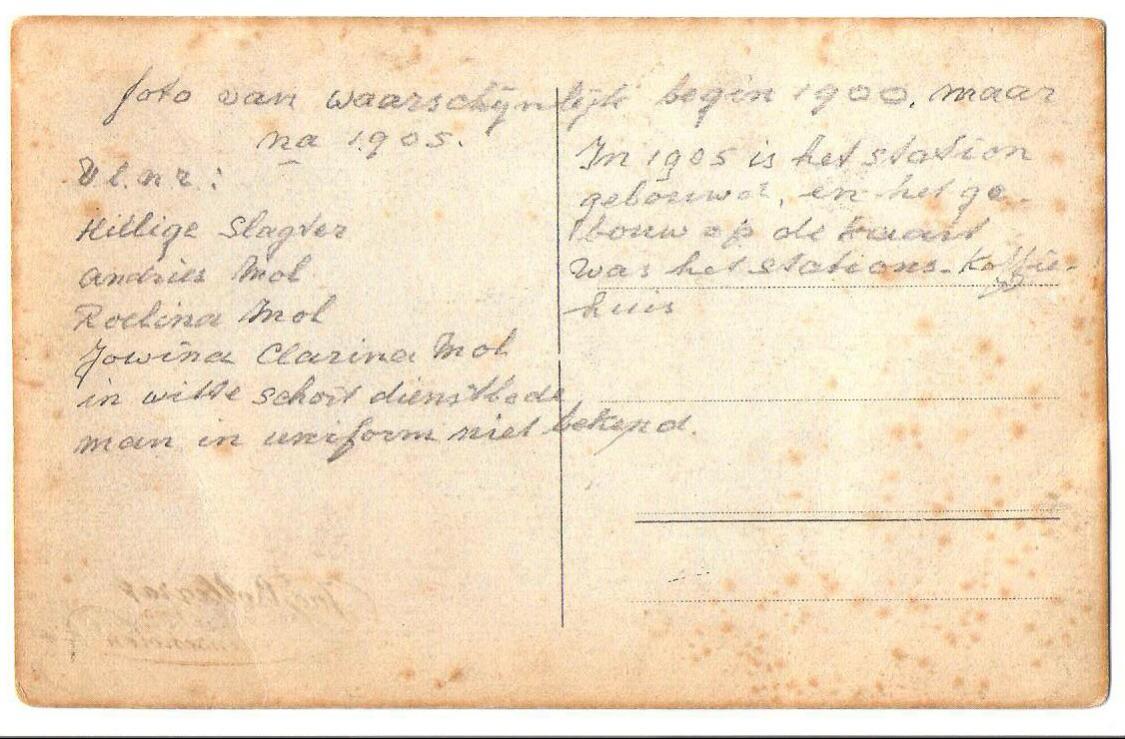 foto van waarschijnlijk begin 1900, maar
na 1905.
V.l.n.r.:
Hillige Slagter
Andries Mol
Roelina Mol
Jowina Clarina Mol
in witte schort dienstbode
man in uniform niet bekend.
In 1905 is het station
gebouwd, en het ge-
bouw op de kaart
was het stations-koffie-
huis